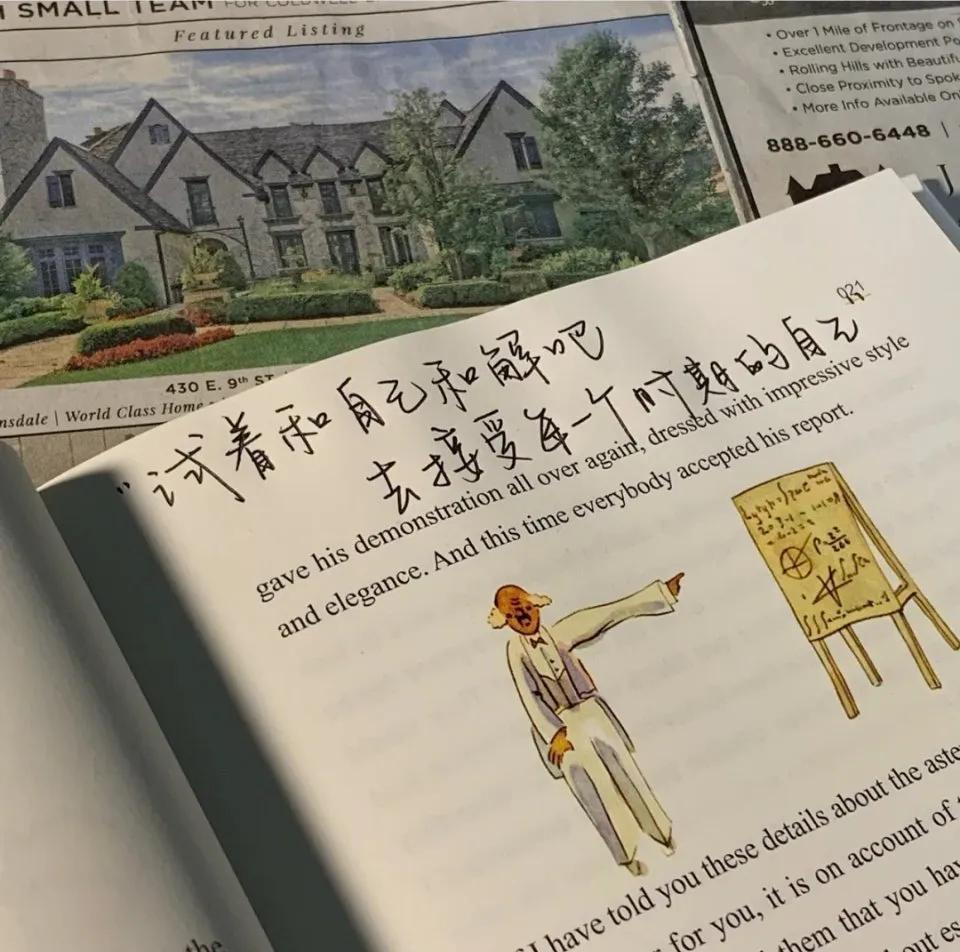 SMALL TEAM FOR COLDWELL
Featured Listing
430 E. 9th ST
nsdale | World Class Home
• Over 1 Mile of Frontage on
• Excellent Development Po
• Rolling Hills with Beautifu
• Close Proximity to Spok
• More Info Available On
888-660-6448 |
J
021
"试着和自己和解吧
去接受每一个时期的自己
gave his demonstration all over again, dressed with impressive style
and elegance. And this time everybody accepted his report.
I have told you these details about the aste
for you, it is on account of
them that you hav
out es
the